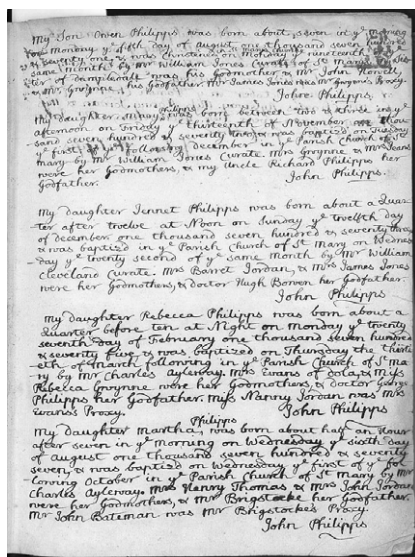 My Son Owen Philipps was born about seven in yͤ morning
Monday yͤ day of August one thousand seven hundred
& seventy one & was Christened on Monday yͤ nineteenth
same month by Mr William Jones Curate of St Mary
of was his Godmother & Mr John Howell,
& Mr Gwynne, his Godfather Mr James Jones was Mr Gwynne's Proxy.
John Philipps
Philipps
My daughter Mary was born between two & three in yͤ
afternoon on Friday yͤ thirteenth of November one thou
sand seven hundred & seventy two & was baptized on Tuesday
yͤ first following december in yͤ Parish Church of St
Mary by Mr William Jones Curate. Mrs Gwynne & Mrs
were her Godmothers, & my Uncle Richard Philipps her
Godfather.
John Philipps.
My daughter Jennet Philipps was born about a Quar
ter after twelve at Noon on Sunday yͤ twelfth day
of december one thousand seven hundred & seventy three
& was baptized in yͤ Parish Church of St Mary on Wednes
day yͤ twenty second of yͤ same month by Mr William
Cleveland Curate. Mrs Barret Jordan, & Mrs James Jones
were her Godmothers, & doctor Hugh Bowen her Godfather.
John Philipps
My daughter Rebecca Philipps was born about a
Quarter before ten at Night on Monday yͤ twenty
seventh day of February one thousand seven hundred
& seventy five & was baptized on Thursday the thirti
eth of March following in yͤ Parish Church of St Ma
ry by Mr Charles Ayleway. Mrs Evans of & Miss
Rebecca Gwynne were her Godmothers, & doctor George
Philipps her Godfather. Miss Nanny Jordan was Mrs
Evans's Proxy.
John Philipps
Philipps
My daughter Martha, was born about half an hour
after seven in yͤ morning on Wednesday yͤ sixth day
of August one thousand seven hundred & seventy
seven, & was baptized on Wednesday yͤ first of yͤ fol
lowing October in yͤ Parish Church of St Mary by Mr
Charles Ayleway. Mrs Henry Thomas & Mrs John Jordan
were her Godmothers, & Mr Brigstocke her Godfather.
Mr John Bateman was Mr Brigstocke's Proxy.
John Philipps